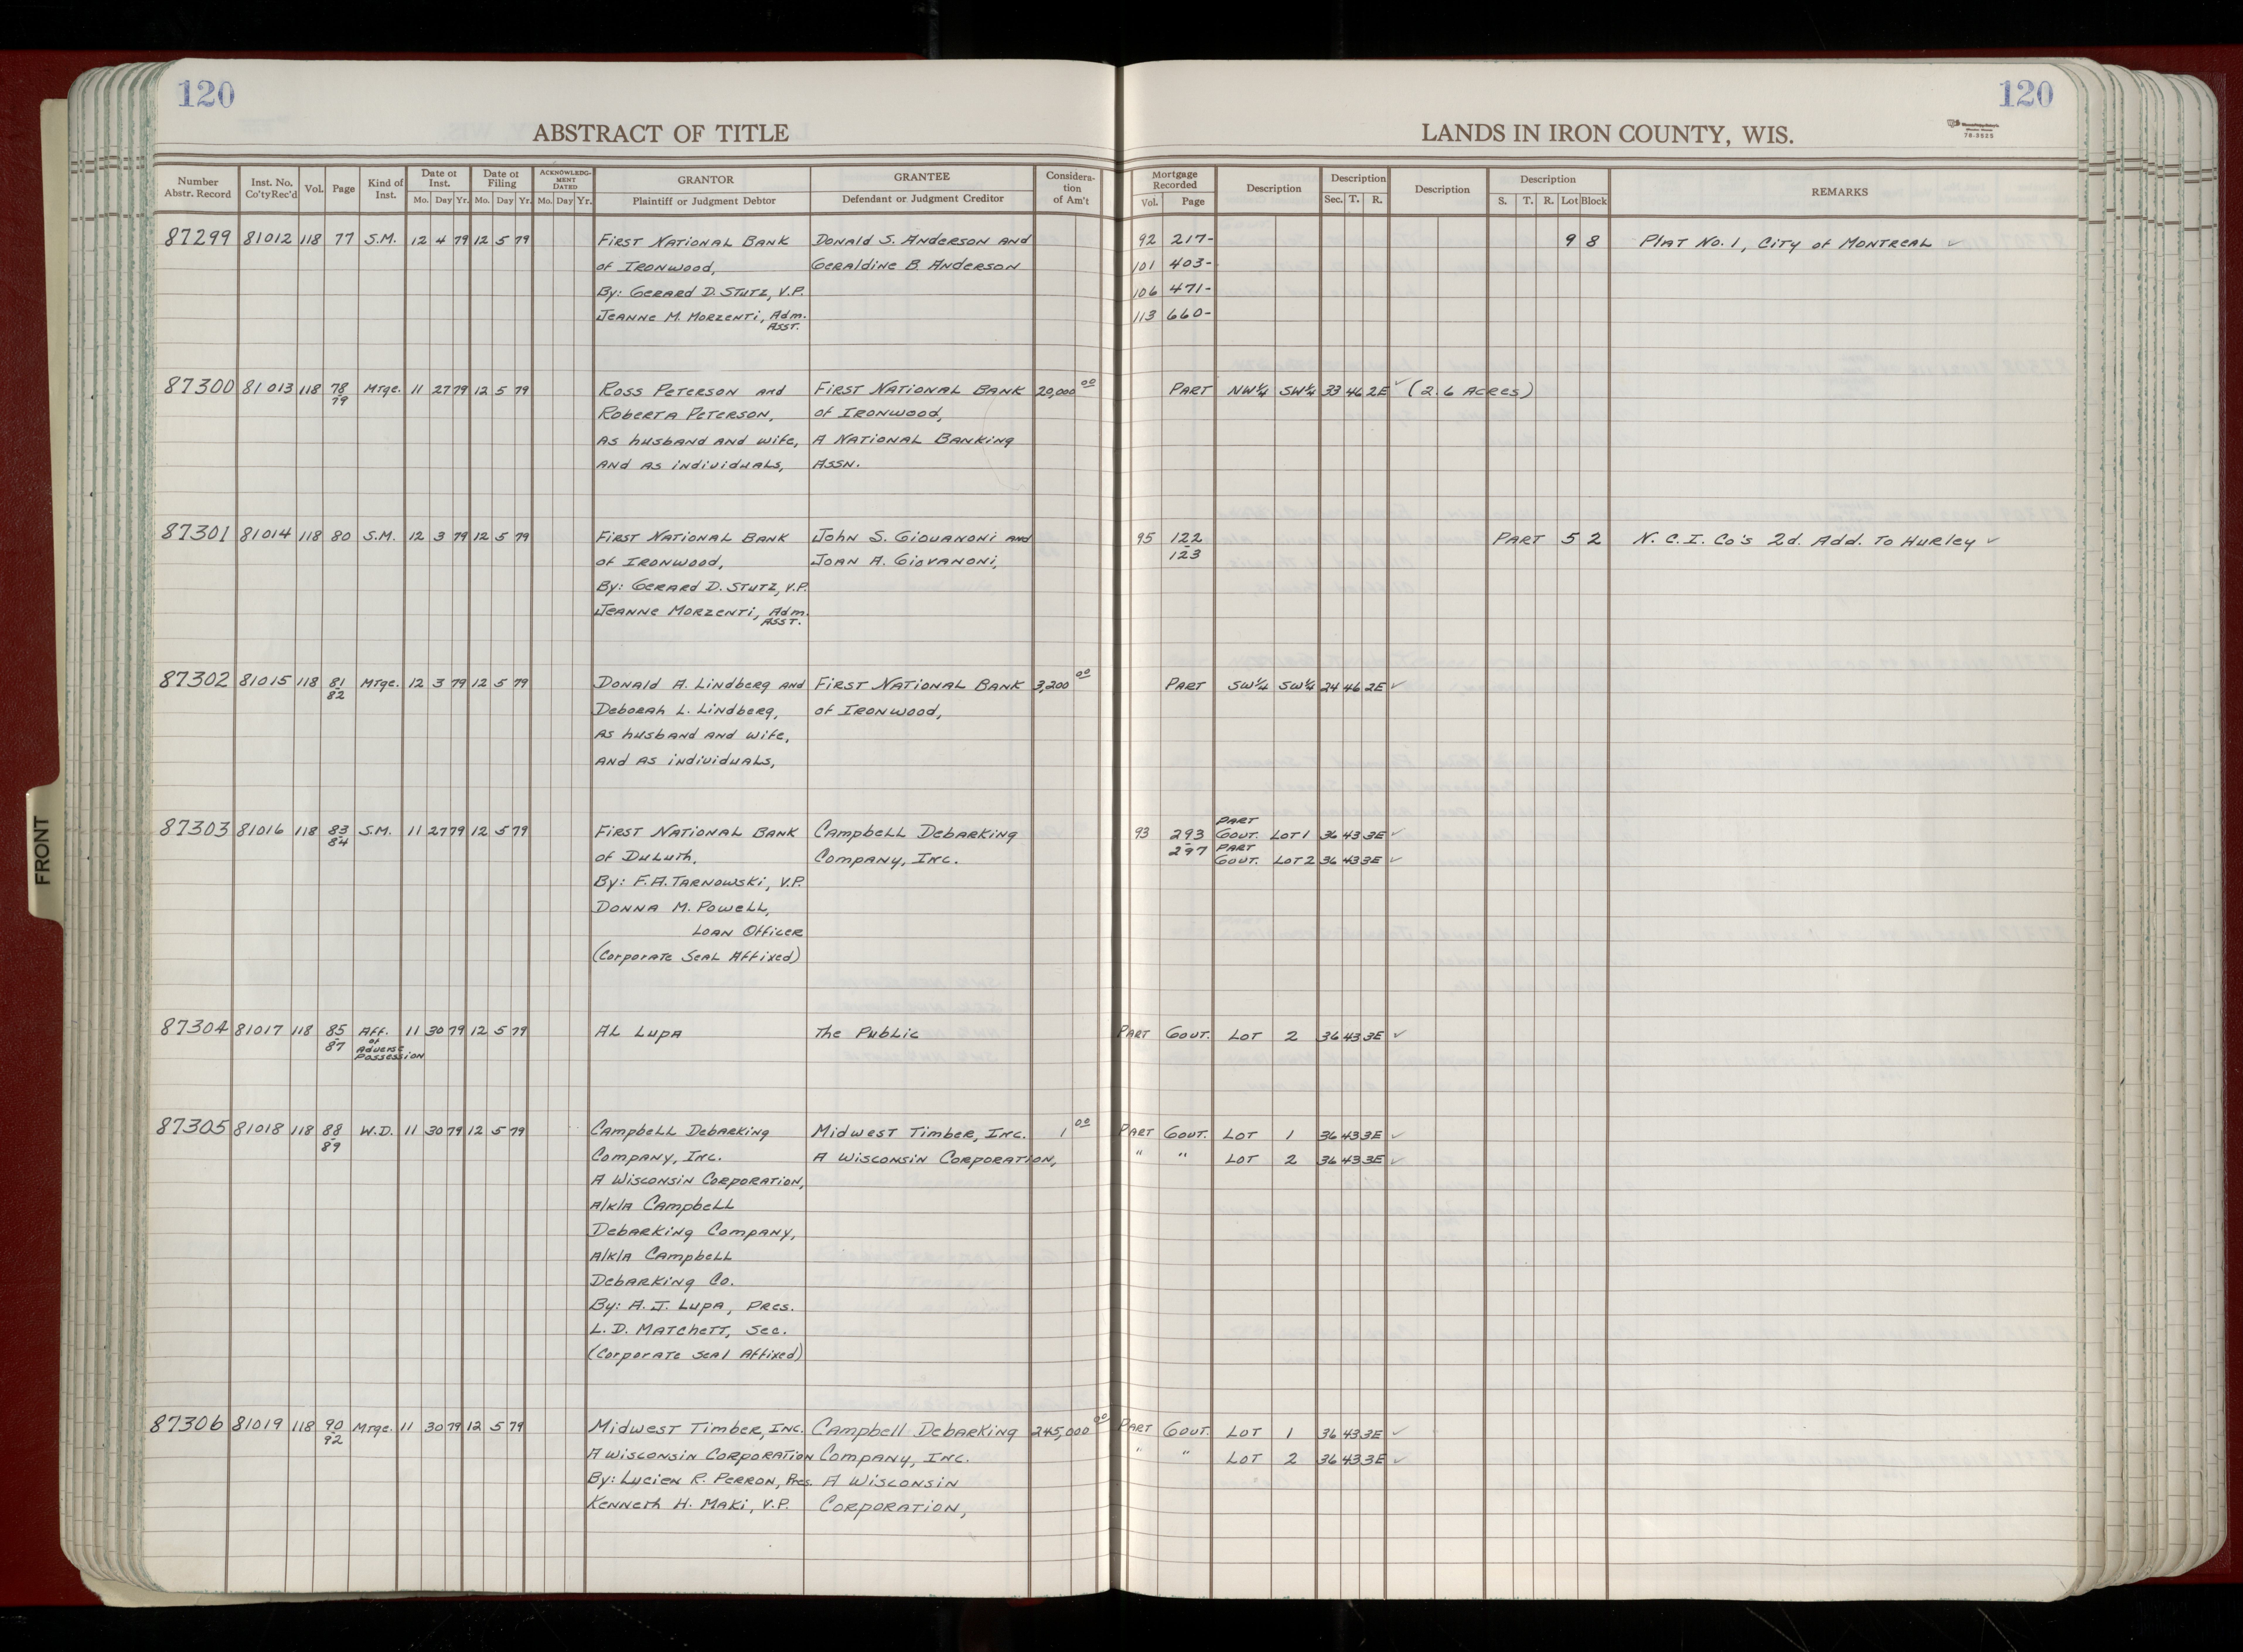 120
ABSTRACT OF TITLE
Number Abstr. Record Inst. No. Co'ty Rec'd Vol. Page Kind of Inst. Date of Inst. Mo. Day Yr. Date of Filing Mo. Day Yr. ACKNOWLEDG-MENT DATED Mo. Day Yr. GRANTOR Plaintiff or Judgment Debtor GRANTEE Defendant or Judgment Creditor Considera-tion of Am't
87299 81012 118 77 S.M. 12 4 79 12 5 79 First National Bank Donald S. Anderson and
of Ironwood, Geraldine B. Anderson
By: Gerard D. Stutz, V.P.
Jeanne M. Morzenti, Adm. Asst.
87300 81013 118 78-79 Mtge. 11 27 79 12 5 79 Ross Peterson and First National Bank 20,000 00
Roberta Peterson, of Ironwood,
as husband and wife, A National Banking
and as individuals, Assn.
87301 81014 118 80 S.M. 12 3 79 12 5 79 First National Bank John S. Giovanoni and
of Ironwood, Joan A. Giovanoni,
By: Gerard D. Stutz, V.P.
Jeanne Morzenti, Adm. Asst.
87302 81015 118 81-82 Mtge. 12 3 79 12 5 79 Donald A. Lindberg and First National Bank 3,200 00
Deborah L. Lindberg, of Ironwood,
as husband and wife,
and as individuals,
87303 81016 118 83-84 S.M. 11 27 79 12 5 79 First National Bank Campbell Debarking
of Duluth, Company, Inc.
By: F.A. Tarnowski, V.P.
Donna M. Powell,
Loan Officer
(Corporate Seal Affixed)
87304 81017 118 85-87 Aff. of Adverse Possession 11 30 79 12 5 79 Al Lupa The Public
87305 81018 118 88-89 W.D. 11 30 79 12 5 79 Campbell Debarking Midwest Timber, Inc. 1 00
Company, Inc. A Wisconsin Corporation,
A Wisconsin Corporation,
a/k/a Campbell
Debarking Company,
a/k/a Campbell
Debarking Co.
By: A.J. Lupa, Pres.
L.D. Matchett, Sec.
(Corporate Seal Affixed)
87306 81019 118 90-92 Mtge. 11 30 79 12 5 79 Midwest Timber, Inc. Campbell Debarking 245,000 00
A Wisconsin Corporation Company, Inc.
By: Lucien R. Perron, Pres. A Wisconsin
Kenneth H. Maki, V.P. Corporation,
FRONT
120
LANDS IN IRON COUNTY, WIS.
78-2525
Mortgage Recorded Vol. Page Description Description Sec. T. R. Description Description S. T. R. Lot Block REMARKS
92 217- 9 8 Plat No. 1, City of Montreal ✓
101 403-
106 471-
113 660-
Part NW¼ SW¼ 33 46 2E ✓ (2.6 Acres)
95 122-123 Part 5 2 N.C.I. Co's 2d. Add. To Hurley ✓
Part SW¼ SW¼ 24 46 2E ✓
93 293-297 Part Govt. Lot 1 36 43 3E ✓
Part Govt. Lot 2 36 43 3E ✓
Part Govt. Lot 2 36 43 3E ✓
Part Govt. Lot 1 36 43 3E ✓
" " Lot 2 36 43 3E ✓
Part Govt. Lot 1 36 43 3E ✓
" " Lot 2 36 43 3E ✓